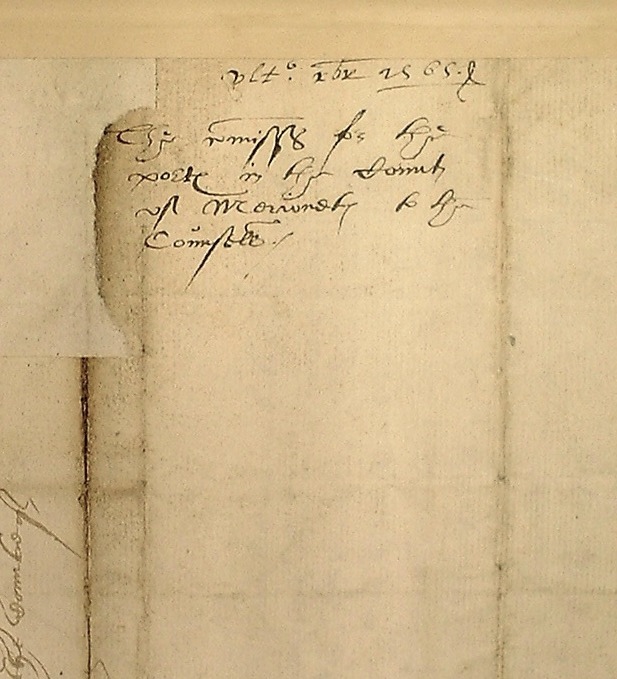 ult°. xbr 1565.
The comiss for the
portes in the Counti
of Merioneth to the
Counsell./